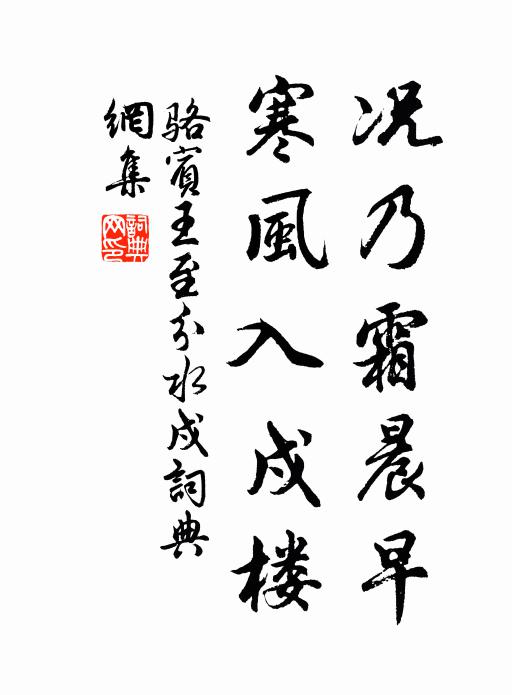 况乃霜晨早
寒風入戍楼
骆賓王至分水戍詞典
網集
詞典
网印